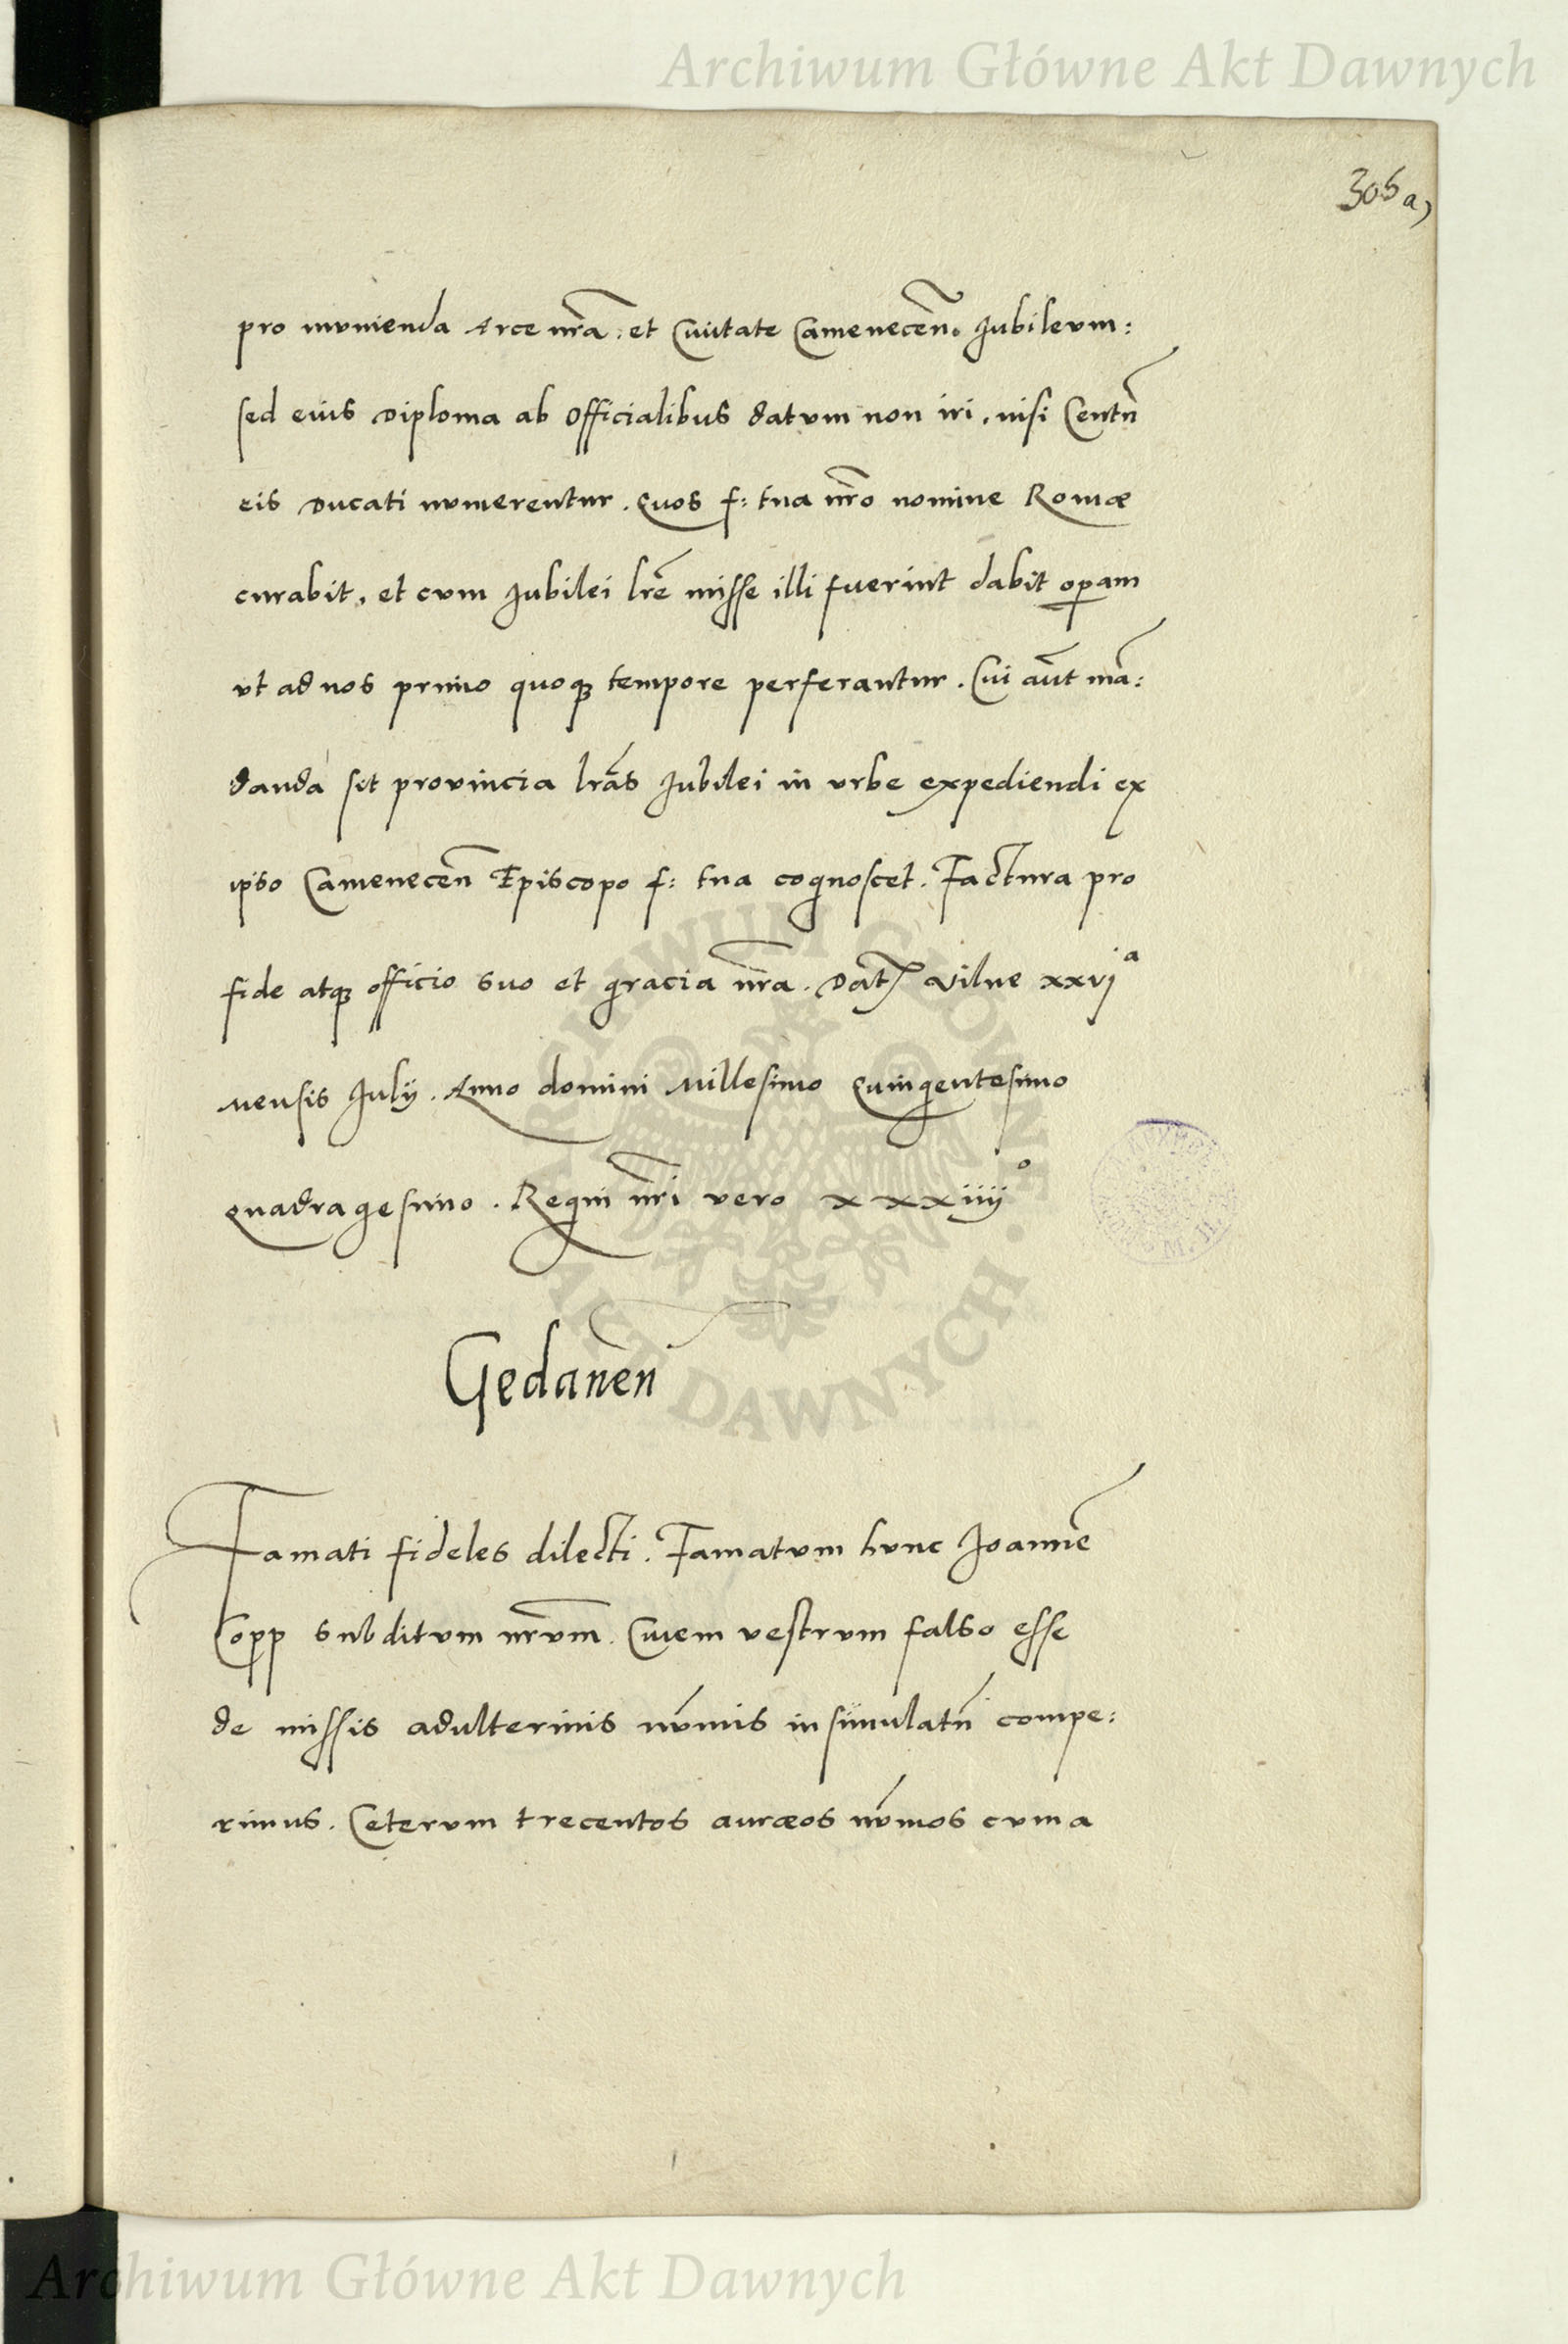 Archiwum Główne Akt Dawnych
305 a)
pro munienda Arce nr̃a : et Ciuitate Camenecen̄. Jubileum:
sed eius Diploma ab Officialibus datum non iri, nisi Centũ
eis Ducati numerentur. Quos f: tua nr̃o nomine Romæ
curabit, et cum Jubilei lr̃e misse illi fuerint dabit op̲am
vt ad nos primo quoqꝫ tempore perferantur. Cui aũt mã:
danda sit prouincia lr̃as Jubilei in vrbe expediendi ex
ipso Camenecen̄ Episcopo f: tua cognoscet. Factura pro
fide atqꝫ officio suo et gracia nr̃a. Dat̃ Vilne xxvjᵃ
mensis Julij. Anno domini Millesimo Quingentesimo
quadragesimo. Regni nr̃i vero xxxiiijᵒ
Gedanen̄
Famati fideles dilecti. Famatum hunc Joannẽ
Copp subditum nr̃um. Ciuem vestrum falso esse
de missis adulterinis nũmis insimulatũ compe:
rimus. Ceterum trecentos auræos nũmos cum a
ARCHIWUM GŁÓWNE AKT DAWNYCH
Archiwum Główne Akt Dawnych